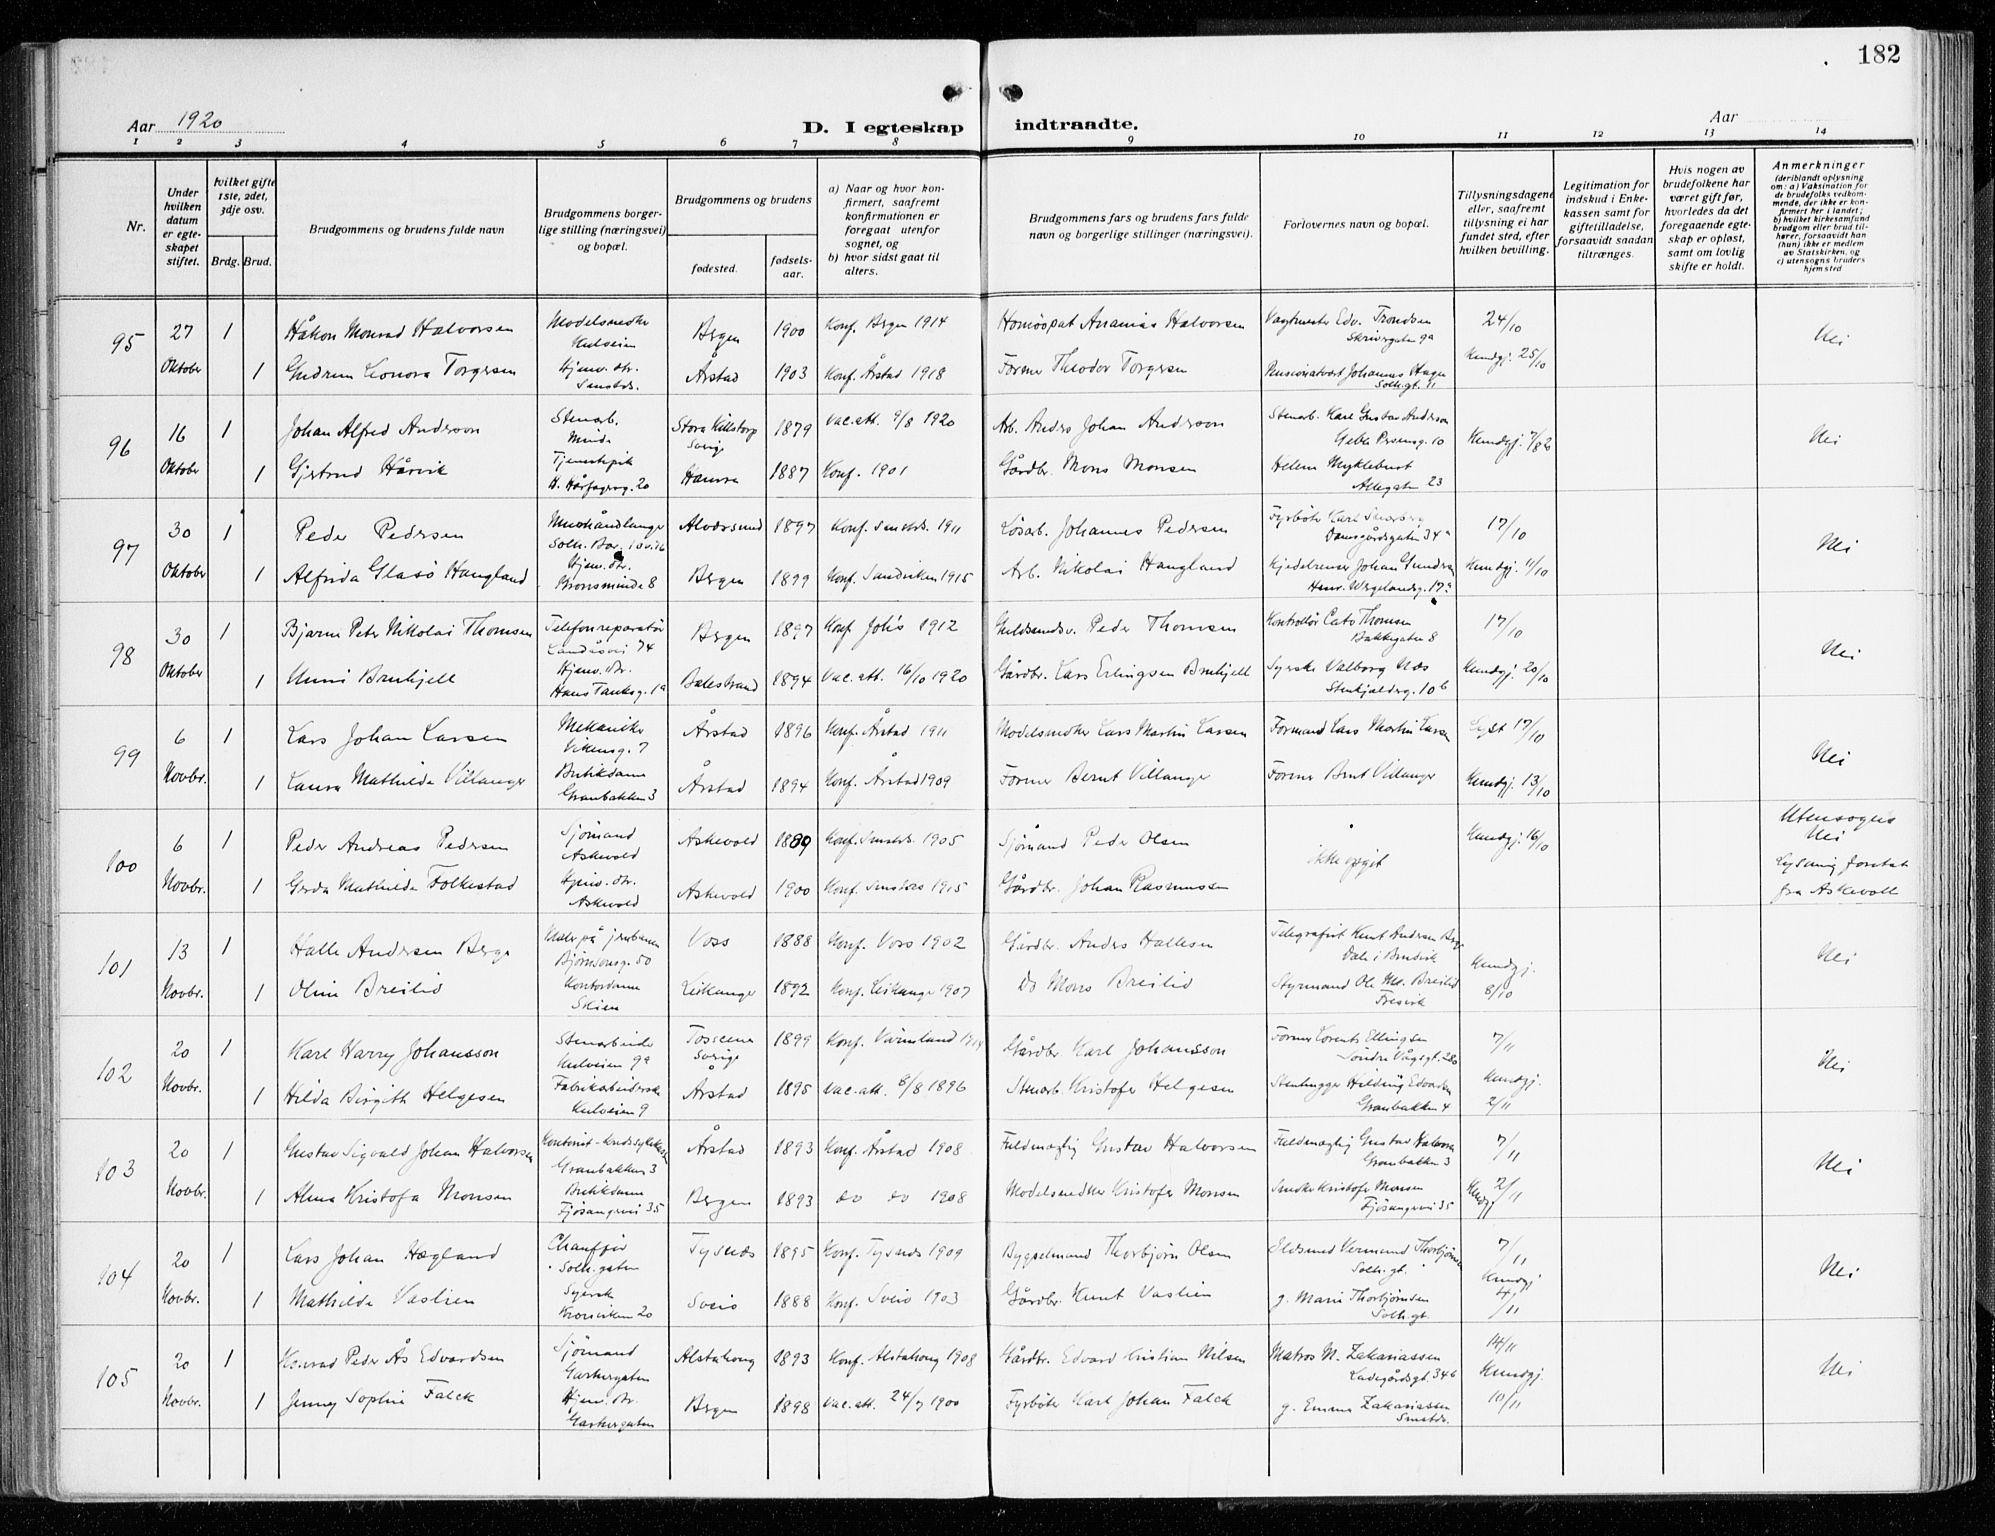 182
Aar 1920
D. I egteskap indtraadte.
Aar
1 2 3 4 5 6 7 8 9 10 11 12 13 14
Nr.
Under hvilken datum er egteskapet stiftet.
hvilket gifte 1ste, 2det, 3dje osv.
Brdg. Brud.
Brudgommens og brudens fulde navn
Brudgommens borgerlige stilling (næringsvei) og bopæl.
Brudgommens og brudens
fødested.
fødselsaar.
a) Naar og hvor konfirmert, saafremt konfirmationen er foregaat utenfor sognet, og
b) hvor sidst gaat til alters.
Brudgommens fars og brudens fars fulde navn og borgerlige stillinger (næringsvei).
Forlovernes navn og bopæl.
Tillysningsdagene eller, saafremt tillysning ei har fundet sted, efter hvilken bevilling.
Legitimation for indskud i Enkekassen samt for giftetilladelse, forsaavidt saadan tiltrænges.
Hvis nogen av brudefolkene har været gift før, hvorledes da det foregaaende egteskap er opløst, samt om lovlig skifte er holdt.
Anmerkninger
(deriblandt oplysning om: a) Vaksination for de brudefolks vedkommende, der ikke er konfirmert her i landet; b) hvilket kirkesamfund brudgom eller brud tilhører, forsaavidt han (hun) ikke er medlem av Statskirken, og c) utensogns bruders hjemsted
95 27 1 Håkon Monrad Halvorsen Modelsnedker Bergen 1900 Konf. Bergen 1914 Homöopat Ananias Halvorsen Vagtmester Edv. Trondsen 24/10 Nei
Kulveien Skrivergaten 9a
Oktober 1 Gudrun Leonora Torgersen Hjemv. dtr. Årstad 1903 Konf. Årstad 1918 Former Theodor Torgersen Johannes Hagen Kundgj. 25/10
Solh.gt. 11
96 16 1 Johan Alfred Anderson Stenarb. Stora Killstorp 1879 vac. att. 9/8 1920 Arb. Anders Johan Anderson Stenarb. Karl Gustav Anderson Kundgj. Nei
Minde Sverige Geble Persensg. 10
Oktober 1 Gjertrud Hårvik Tjenestepik Hausvn 1887 Konf. 1901 Gårdbr. Mons Monsen Helene Myklebust
H. Hårfagersg. 20 Allegaten 23
97 30 1 Peder Pedersen Murhåndlanger Alversund 1897 Konf. 1911 Løsarb. Johannes Pedersen Fyrbøter Karl 17/10 Nei
Damsgårdsgaten 34a
Oktober 1 Alfrida Glasö Haugland Hjemv. dtr. Bergen 1899 Konf. Sandviken 1915 Arb. Nikolai Haugland Kjedelrenser Johan Gundersen Kundgj. 11/10
Kronsminde 8 Henr. Wergelandsg. 17a
98 30 1 Bjarne Peter Nikolai Thomsen Telefonreparatör Bergen 1897 Konf. Joh's 1912 Guldsmedsv. Peder Thomsen Kontrollör Cato Thomsen 17/10 Nei
Landåsvei 74 Bakkegaten 8
Oktober 1 Unni Bruhjell Hjemv. dtr. Balestrand 1894 Vac. att. 16/10 1920 Gårdbr. Lars Erlingsen Bruhjell Syerske Valborg Næs Kundgj. 20/10
Hans Tanksg. 1a Stenkjeldersg. 10b
99 6 1 Lars Johan Larsen Mekaniker Årstad 1896 Konf. Årstad 1911 Modelsnedker Lars Martin Larsen Formand Lars Martin Larsen Lyst 17/10 Nei
Vikensg. 7
Novbr. 1 Laura Mathilde Villanger Butikdame Årstad 1894 Konf. Årstad 1909 Former Bernt Villanger Former Bernt Villanger Kundgj. 13/10
Granbakken 3
100 6 1 Peder Andreas Pedersen Sjömand Askevold 1889 Konf. 1905 Sjømand Peder Olsen ikke opgit Kundgj. 16/10 Utensogns
Askevold Nei
Novbr. 1 Gerda Mathilde Folkestad Hjemv. dtr. Askevold 1900 Konf. 1915 Gårdbr. Johan Rasmussen Lysning foretat
Askevold fra Askevoll
101 13 1 Halle Andersen Berge Maler på jernbanen Voss 1888 Konf. Voss 1902 Gårdbr. Anders Hallesen Telegrafist Knut Andersen Berge Kundgj. 8/10 Nei
Bjørnsonsg. 50 Dale i Bruvik
Novbr. 1 Oline Breilid Kontordame Leikanger 1892 Konf. Leikanger 1907 Do Mons Breilid Styrmand Ole Ms. Breilid
Skien Fresvik
102 20 1 Karl Harry Johansson Stenarbeider Tossene 1899 Konf. Värmland 1914 Gårdbr. Karl Johansson Former Lorents Ellingsen 7/11 Nei
Kulveien 9a Sverige Söndre Vågsgt. 28a
Novbr. 1 Hilda Birgith Helgesen Fabrikarbeiderske Årstad 1895 Vac. att. 8/8 1896 Stenarb. Kristofer Helgesen Stenhugger Hilding Edvardsen Kundgj. 2/11
Kulveien 9 Granbakken 4
103 20 1 Gustav Sigvald Johan Halvorsen Kontorist Årstad 1893 Konf. Årstad 1908 Fuldmægtig Gustav Halvorsen Fuldmægtig Gustav Halvorsen 7/11 Nei
Granbakken 3 Granbakken 3
Novbr. 1 Alma Kristofa Monsen Butikdame Bergen 1893 do do 1908 Modelsnedker Kristofer Monsen Snedker Kristofer Monsen Kundgj. 2/11
Fjösangerveí 35 Fjösangervei 35
104 20 1 Lars Johan Hægland Chauffør Tysnes 1895 Konf. Tysnes 1909 Bygselmand Thorbjørn Olsen Ildsmed Vermund Thorbjørnsen 7/11 Nei
Solh.gaten Solh.gt.
Novbr. 1 Mathilde Vaslien Syersk Sveio 1888 Konf. Sveio 1903 Gårdbr. Knut Vaslien g. Marie Thorbjörnsen Kundgj. 4/11
Kronviken 20 Solh.gt.
105 20 1 Konrad Peder Ås Edvardsen Sjömand Alstahoug 1893 Konf. Alstahoug 1908 Gårdbr. Edvard Kristian Nilsen Matros N. Zakariassen 14/11 Nei
Garhergaten Ladegårdsgt. 34b
Novbr. 1 Jenny Sophie Falck Hjemv. dtr. Bergen 1898 Vac. att. 24/7 1900 Fyrbøter Karl Johan Falck g. Emma Zakariassen Kundgj. 10/11
Garhergaten Smstds.